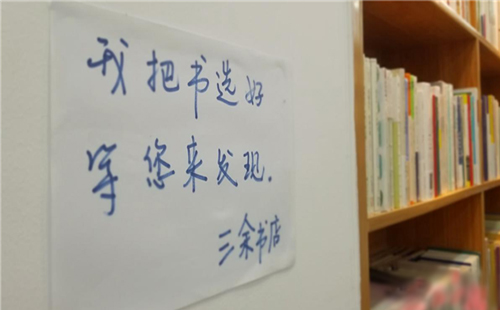 我把书选好
等您来发现.
三余书店